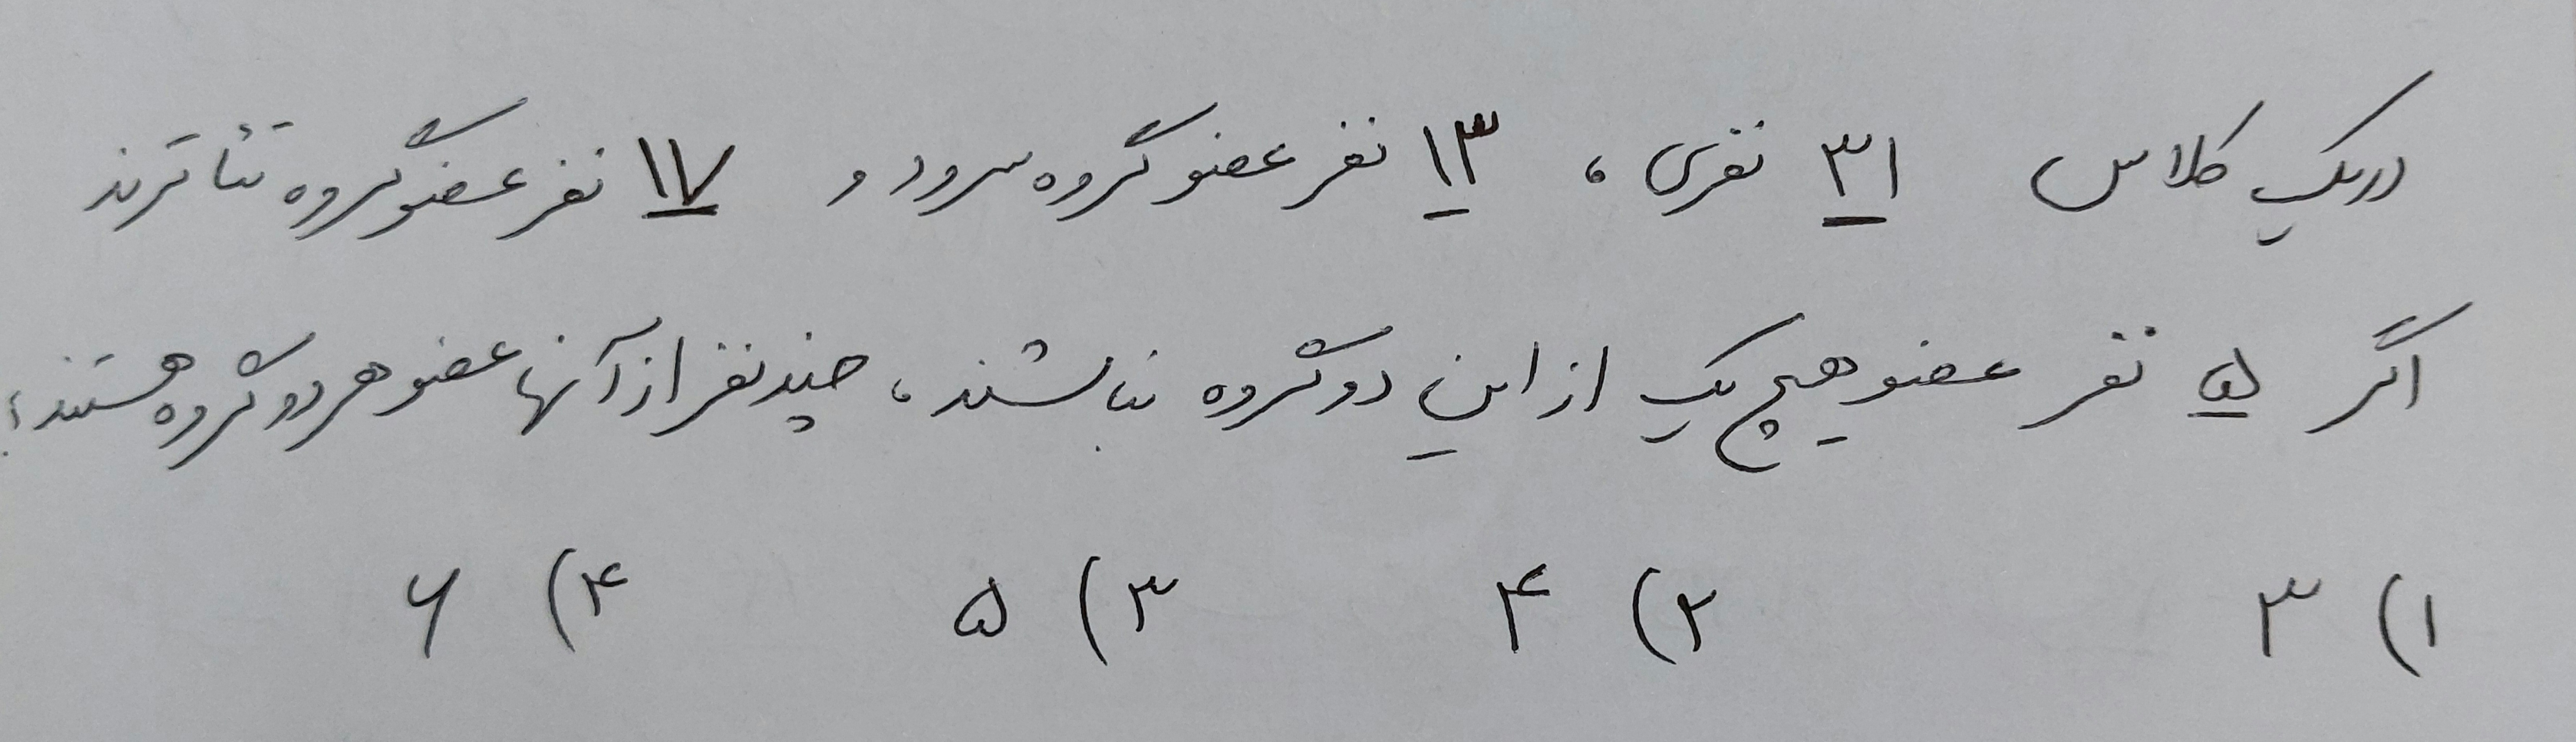 در یک کلاس ۳۱ نفری، ۱۳ نفر عضو گروه سرود و ۱۷ نفر عضو گروه تئاترند
اگر ۵ نفر عضو هیچ یک از این دو گروه نباشند، چند نفر از آنها عضو هر دو گروه هستند؟
۱) ۳ ۲) ۴ ۳) ۵ ۴) ۶